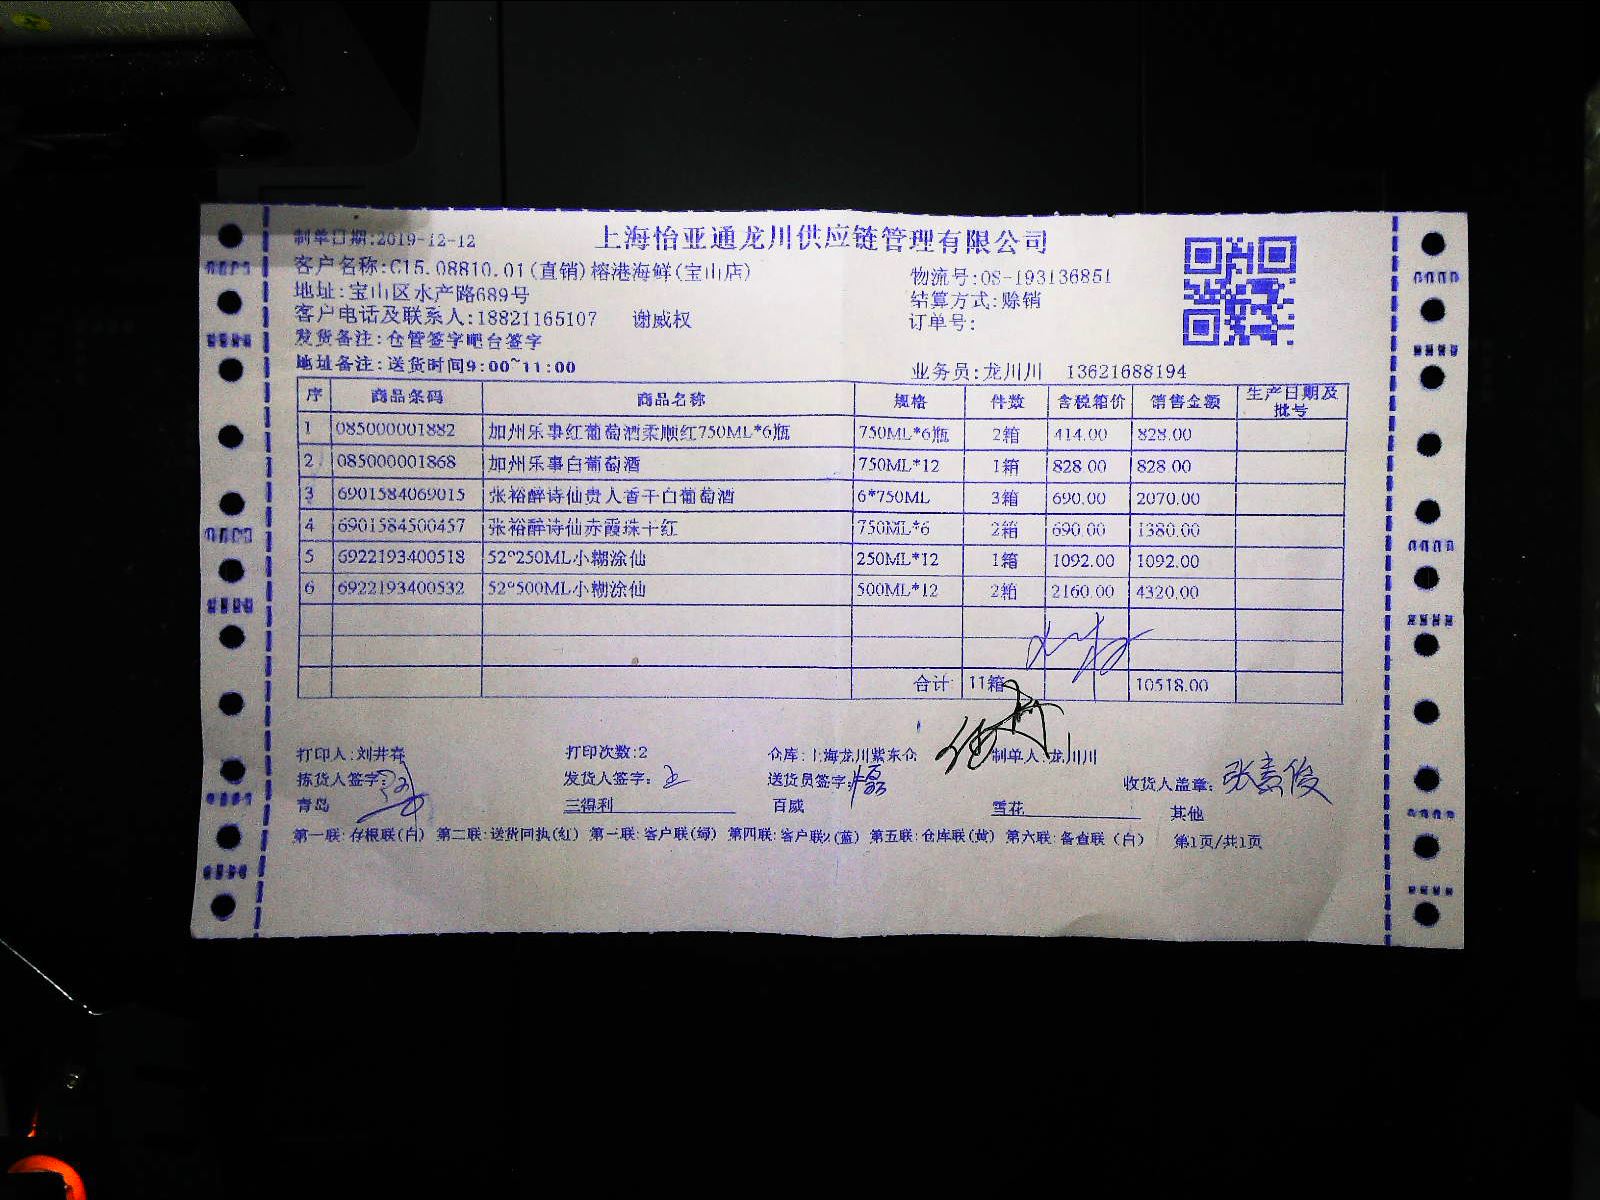 制单日期:2019-12-12 上海怡亚通龙川供应链管理有限公司
客户名称:C15.08810.01(直销)榕港海鲜(宝山店) 物流号:08-193136851
地址:宝山区水产路689号 结算方式:赊销
客户电话及联系人:18821165107 谢威权 订单号:
发货备注:仓管签字吧台签字
地址备注:送货时间9:00~11:00 业务员:龙川川 13621688194
序 商品条码 商品名称 规格 件数 含税箱价 销售金额 生产日期及批号
1 085000001882 加州乐事红葡萄酒柔顺红750ML*6瓶 750ML*6瓶 2箱 414.00 828.00
2 085000001868 加州乐事白葡萄酒 750ML*12 1箱 828.00 828.00
3 6901584069015 张裕醉诗仙贵人香干白葡萄酒 6*750ML 3箱 690.00 2070.00
4 6901584500457 张裕醉诗仙赤霞珠干红 750ML*6 2箱 690.00 1380.00
5 6922193400518 52°250ML小糊涂仙 250ML*12 1箱 1092.00 1092.00
6 6922193400532 52°500ML小糊涂仙 500ML*12 2箱 2160.00 4320.00
合计 11箱 10518.00
打印人:刘井春 打印次数:2 仓库:上海龙川紫东仓 制单人:龙川川
拣货人签字: 发货人签字: 送货员签字: 收货人盖章:
青岛 三得利 百威 雪花 其他
第一联:存根联(白) 第二联:送货回执(红) 第一联:客户联(绿) 第四联:客户联2(蓝) 第五联:仓库联(黄) 第六联:备查联(白) 第1页/共1页